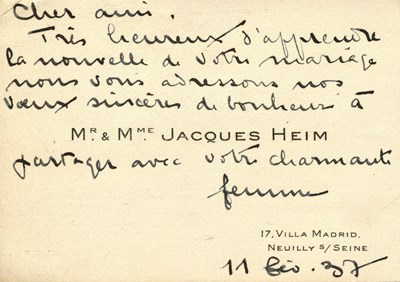 Cher ami.
Très heureux d'apprendre
la nouvelle de votre mariage
nous vous adressons nos
vœux sincères de bonheur à
MR. & MME JACQUES HEIM
partager avec votre charmante
femme
17, VILLA MADRID.
NEUILLY S/SEINE
11 fév. 37